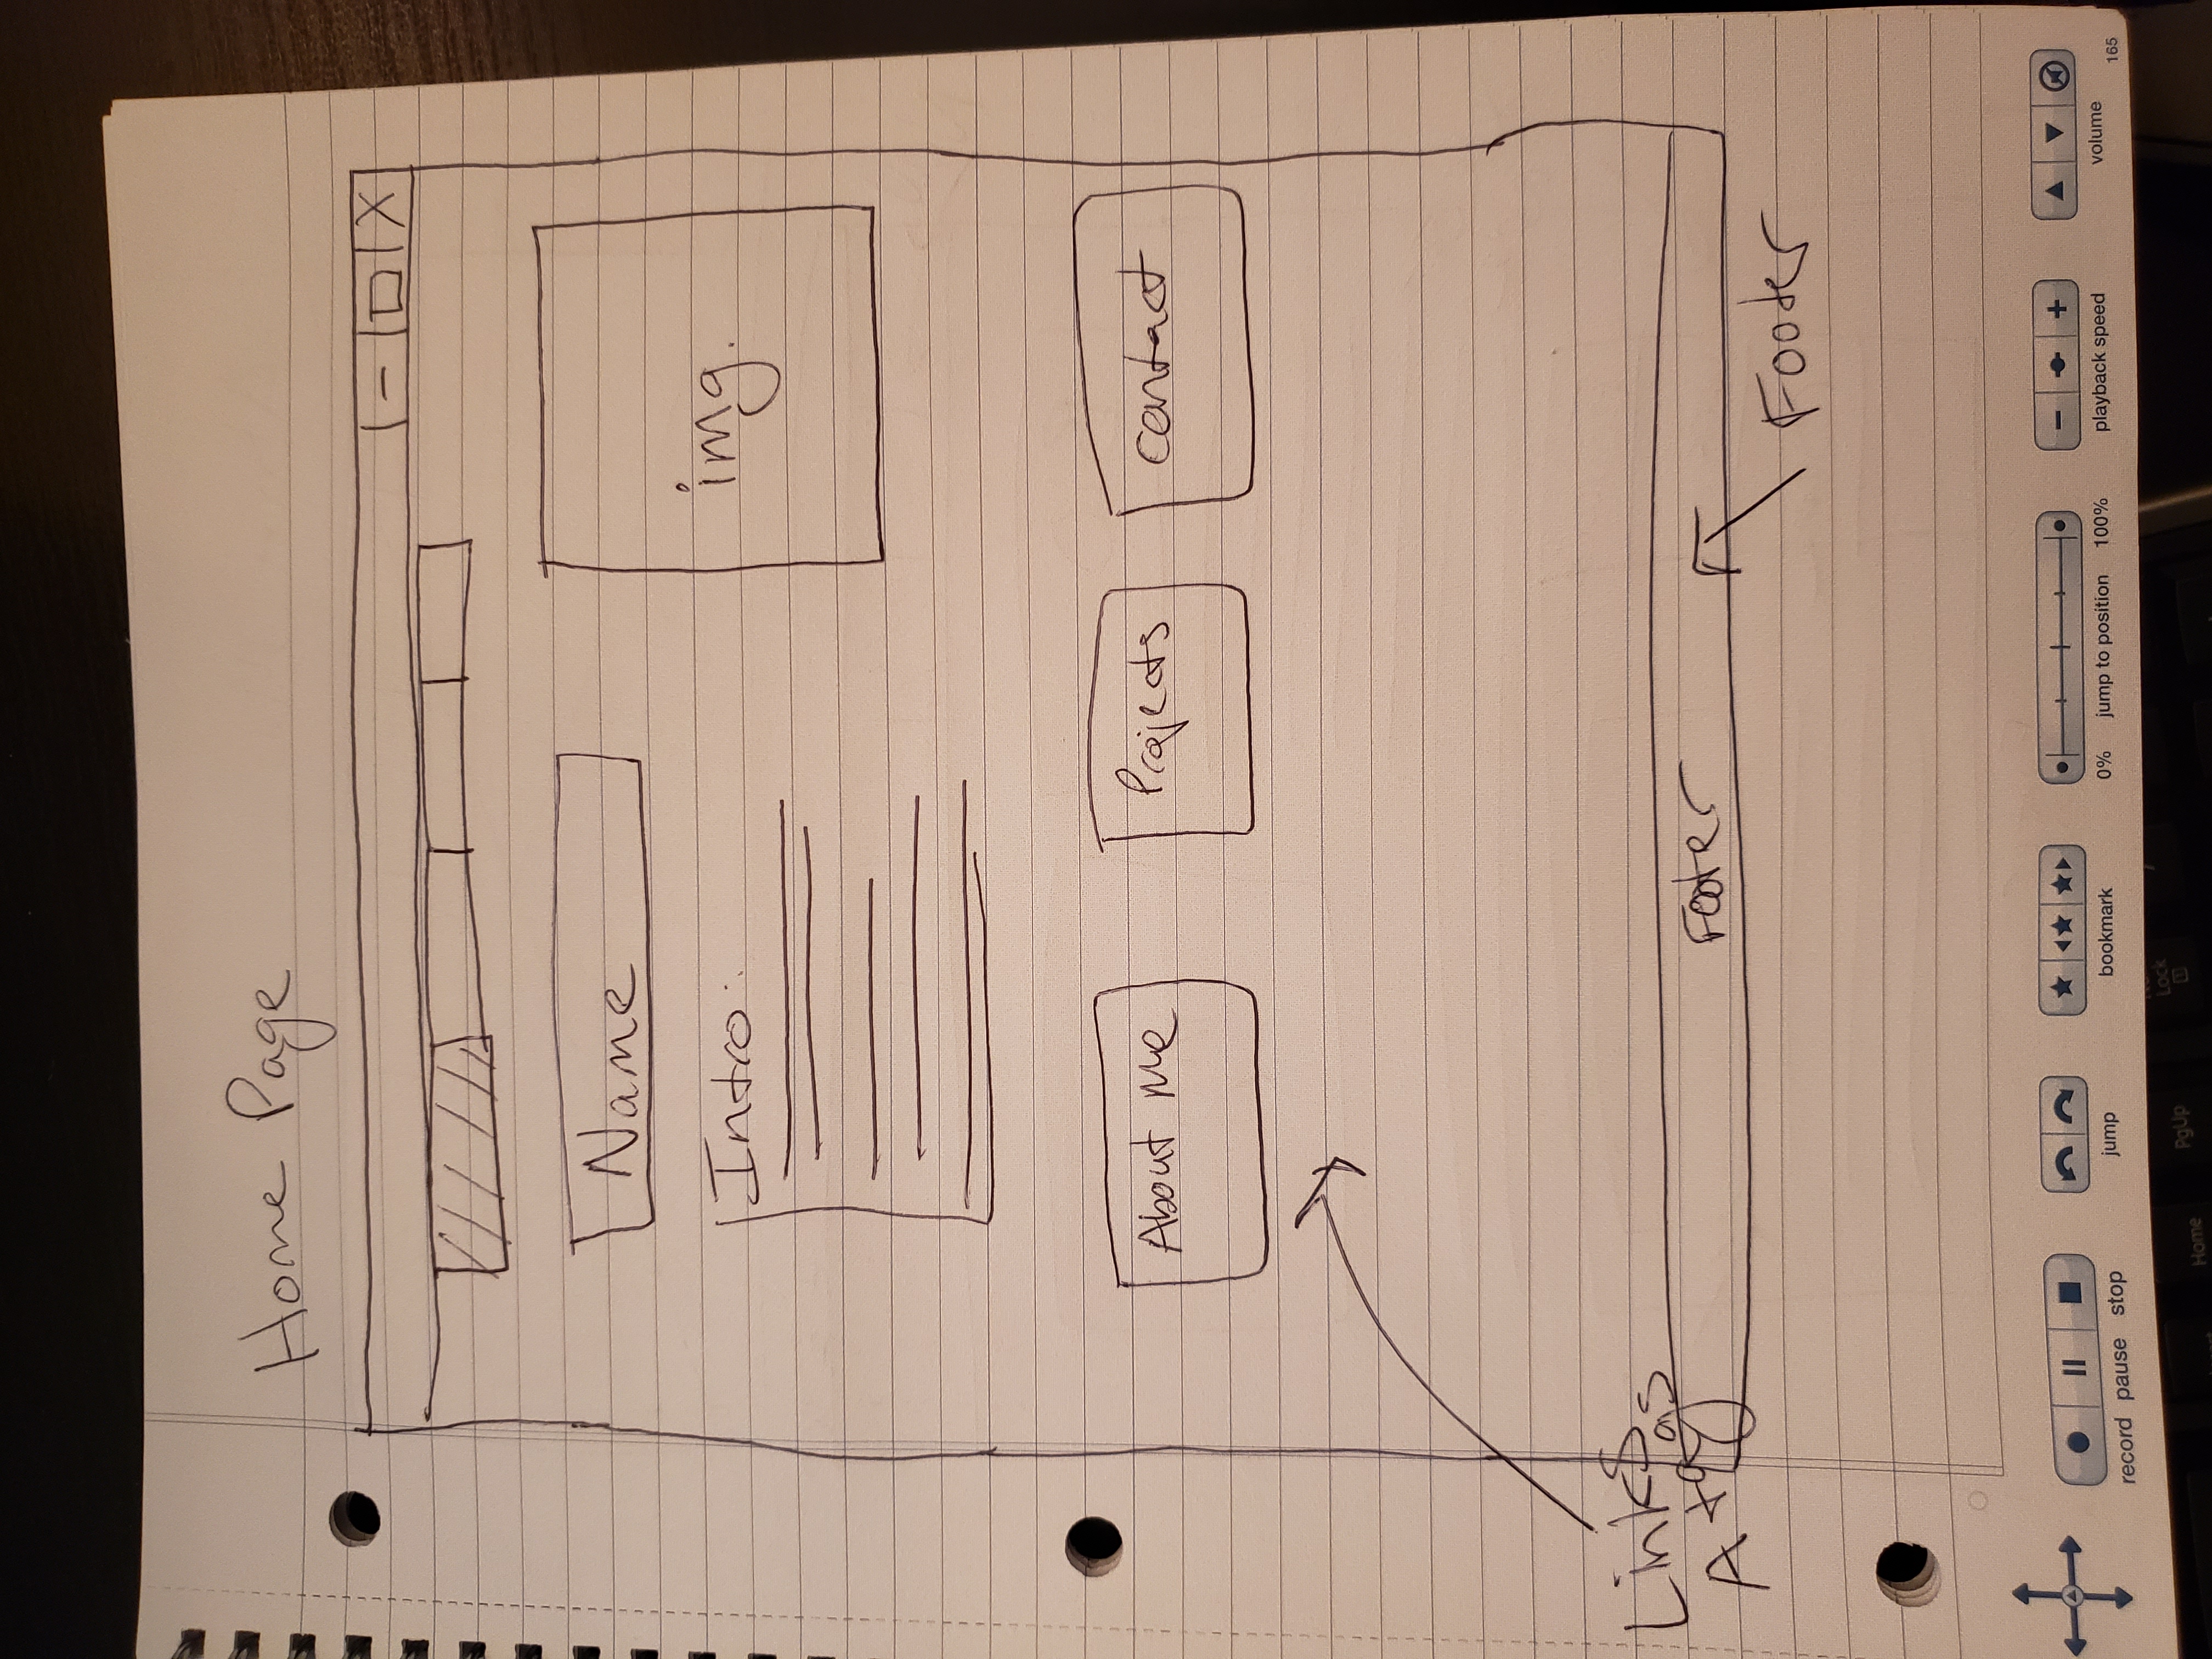 Home Page
- □ X
Name
img.
Intro:
About Me
Projects
Contact
Links
A tags
Footer
Footer
record pause stop
jump
bookmark
0% jump to position 100%
playback speed
volume
165
Lock
Home
PgUp